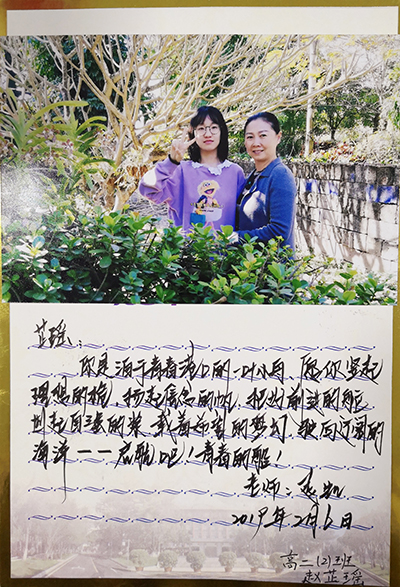 芷瑶：
你是泊于青春港口的一叶小舟，愿你竖起
理想的桅，扬起信念的帆，把好前进的舵
划起自强的桨，载着希望的梦幻，驶向辽阔的
海洋——启航吧！青春的船！
老师：
2019年2月6日
高二(2)班
赵芷瑶